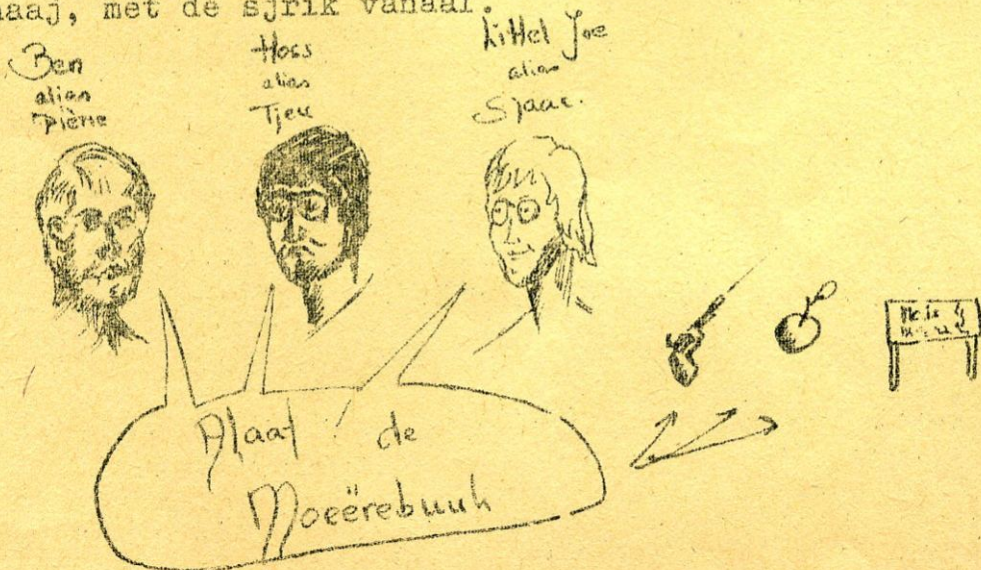 naaj, met de sjrik vanaaf.
Ben
alias
Pierre
Hoss
alias
Tjeu
Littel Joe
alias
Sjaac.
Alaaf de
Moeërebuuk